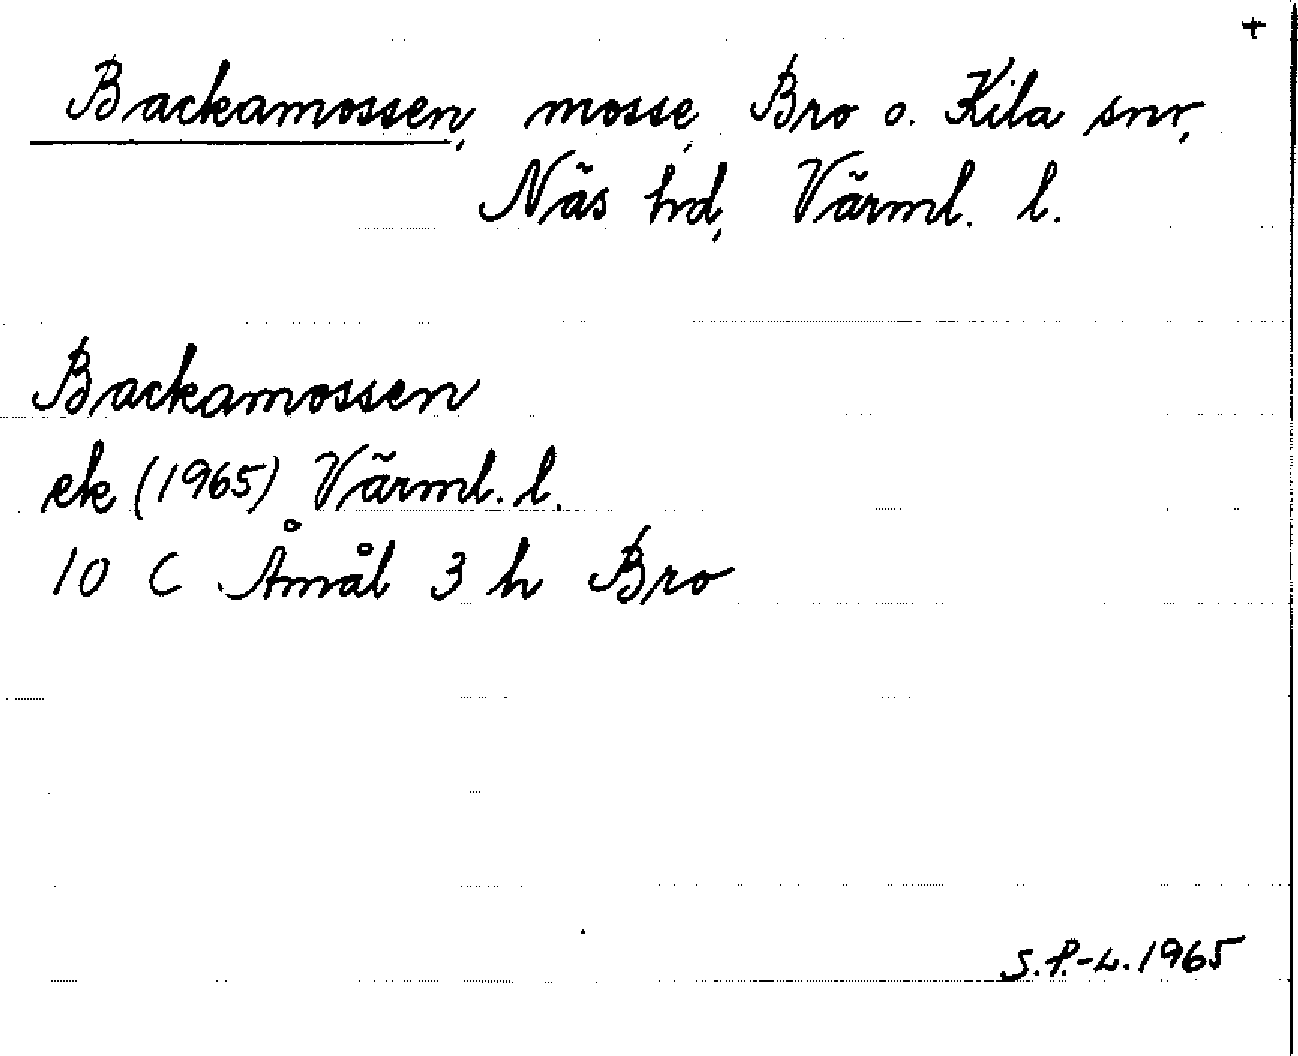 +
Backamossen, mosse, Bro o. Kila snr,
Näs hd, Värml. l.
Backamossen
ek (1965) Värml. l.
10 C Åmål 3 h Bro
S.P.-L. 1965